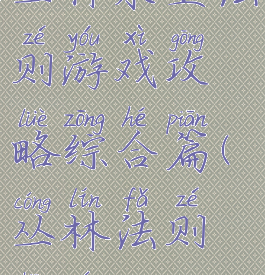 zé yóu xì gōng
则游戏攻
lüè zōng hé piān
略综合篇(
cóng lín fǎ zé
丛林法则